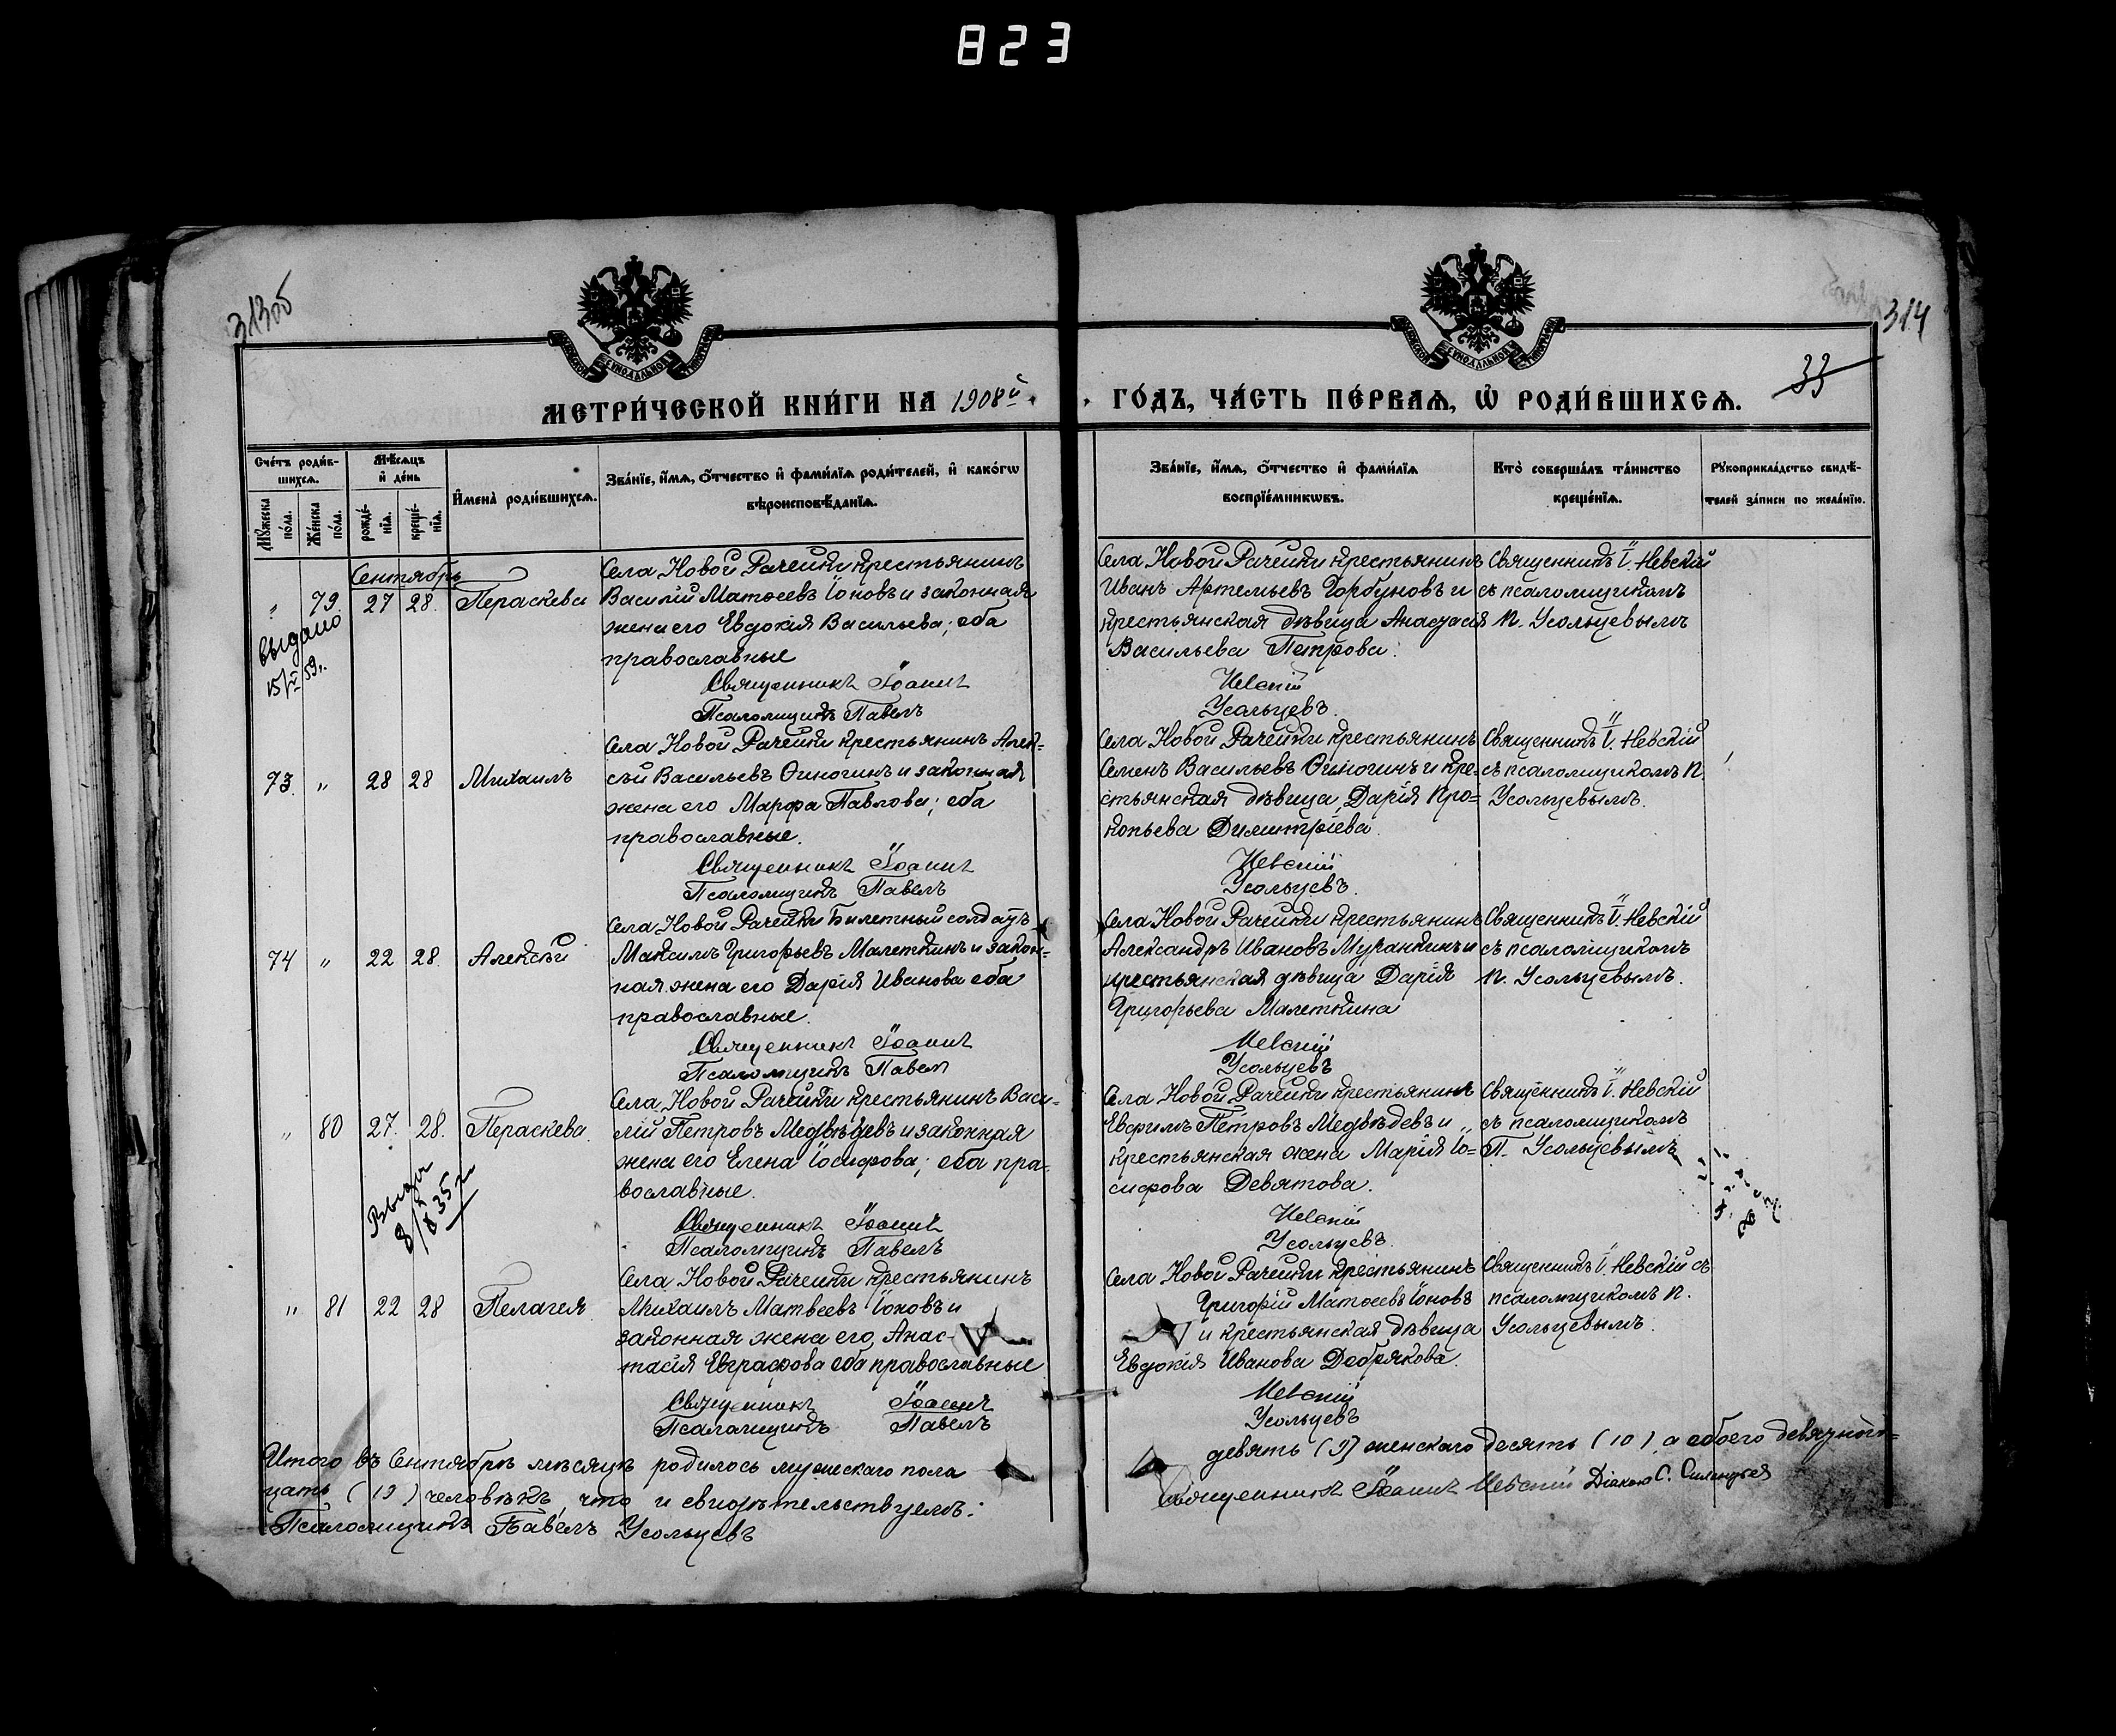 823
313об
314
33
МЕТРИ́ЧЕСКОЙ КНИ́ГИ НА 1908й
ГО́ДЪ, ЧА́СТЬ ПЕ́РВАѦ, Ѡ҆ РОДИ́ВШИХСѦ.
Сче́тъ роди́в-
шихсѧ.
Мꙋ́жеска
по́ла.
Же́нска
по́ла.
Мѣ́сѧцъ
и҆ де́нь
рожде́-
нїѧ.
креще́-
нїѧ.
И҆мена̀ роди́вшихсѧ.
Зва́нїе, и҆́мѧ, ѻ҆́тчество и҆ фами́лїѧ роди́телей, и҆ како́гѡ
вѣроисповѣ́данїѧ.
Зва́нїе, и҆́мѧ, ѻ҆́тчество и҆ фами́лїѧ
воспрїе́мникѡвъ.
Кто̀ соверша́лъ та́инство
креще́нїѧ.
Рꙋкоприкла́дство свидѣ́-
телей за́писи по жела́нїю.
Сентябрь
" 79. 27 28. Параскева
выдано
15/V 59г.
Села Новой Рачейки крестьянинъ
Василій Матѳеевъ Іоновъ и законная
жена его Евдокия Васильева; оба
православные
Священникъ Іоаннъ
Псаломщикъ Павелъ
Села Новой Рачейки крестьянинъ
Иванъ Артемьевъ Горбуновъ и
крестьянская дѣвица Анастасія
Васильева Петрова.
Невскій
Усольцевъ.
Священникъ І. Невскій
съ псаломщикомъ
П. Усольцевымъ
73. " 28 28 Михаилъ
Села Новой Рачейки крестьянинъ Алек-
сѣй Васильевъ Финогинъ и законная
жена его Марфа Павлова; оба
православные.
Священникъ Іоаннъ
Псаломщикъ Павелъ
Села Новой Рачейки крестьянинъ
Семенъ Васильевъ Финогинъ и кре-
стьянская дѣвица Дарія Про-
копьева Димитріева.
Невскій
Усольцевъ.
Священникъ І. Невскій
съ псаломщикомъ П.
Усольцевымъ.
74 " 22 28. Алексѣй
Села Новой Рачейки билетный солдатъ
Максимъ Григорьевъ Малеткинъ и закон-
ная жена его Дарія Иванова оба
православные.
Священникъ Іоаннъ
Псаломщикъ Павелъ
Села Новой Рачейки крестьянинъ
Александръ Ивановъ Муранкинъ и
крестьянская дѣвица Дарія
Григорьева Малеткина
Невскій
Усольцевъ
Священникъ І. Невскій
съ псаломщикомъ
П. Усольцевымъ.
" 80 27. 28. Параскева.
Села Новой Рачейки крестьянинъ Васи-
лій Петровъ Медвѣдевъ и законная
жена его Елена Іосифова; оба пра-
вославные.
Священникъ Іоаннъ
Псаломщикъ Павелъ
Села Новой Рачейки крестьянинъ
Евфимъ Петровъ Медвѣдевъ и "
крестьянская жена Марія Іо-
сифова Девятова.
Невскій
Усольцевъ.
Священникъ І. Невскій
съ псаломщикомъ
П. Усольцевымъ
" 81 22 28 Пелагея
Села Новой Рачейки крестьянинъ
Михаилъ Матвеевъ Іоновъ и
законная жена его, Анас-
тасія Евграфова оба православные
Священникъ Іоаннъ
Псаломщикъ Павелъ
Села Новой Рачейки крестьянинъ
Григорій Матѳеевъ Іоновъ
и крестьянская дѣвица
Евдокія Иванова Добрякова.
Невскій
Усольцевъ
Священникъ І. Невскій съ
псаломщикомъ П.
Усольцевымъ.
Итого въ Сентябрѣ мѣсяцѣ родилось мужескаго пола
девять (9) женскаго десять (10), а обоего девятнад-
цать (19) человѣкъ, что и свидѣтельствуемъ:
Священникъ Іоаннъ Невскій Діаконъ С.
Псаломщикъ Павелъ Усольцевъ